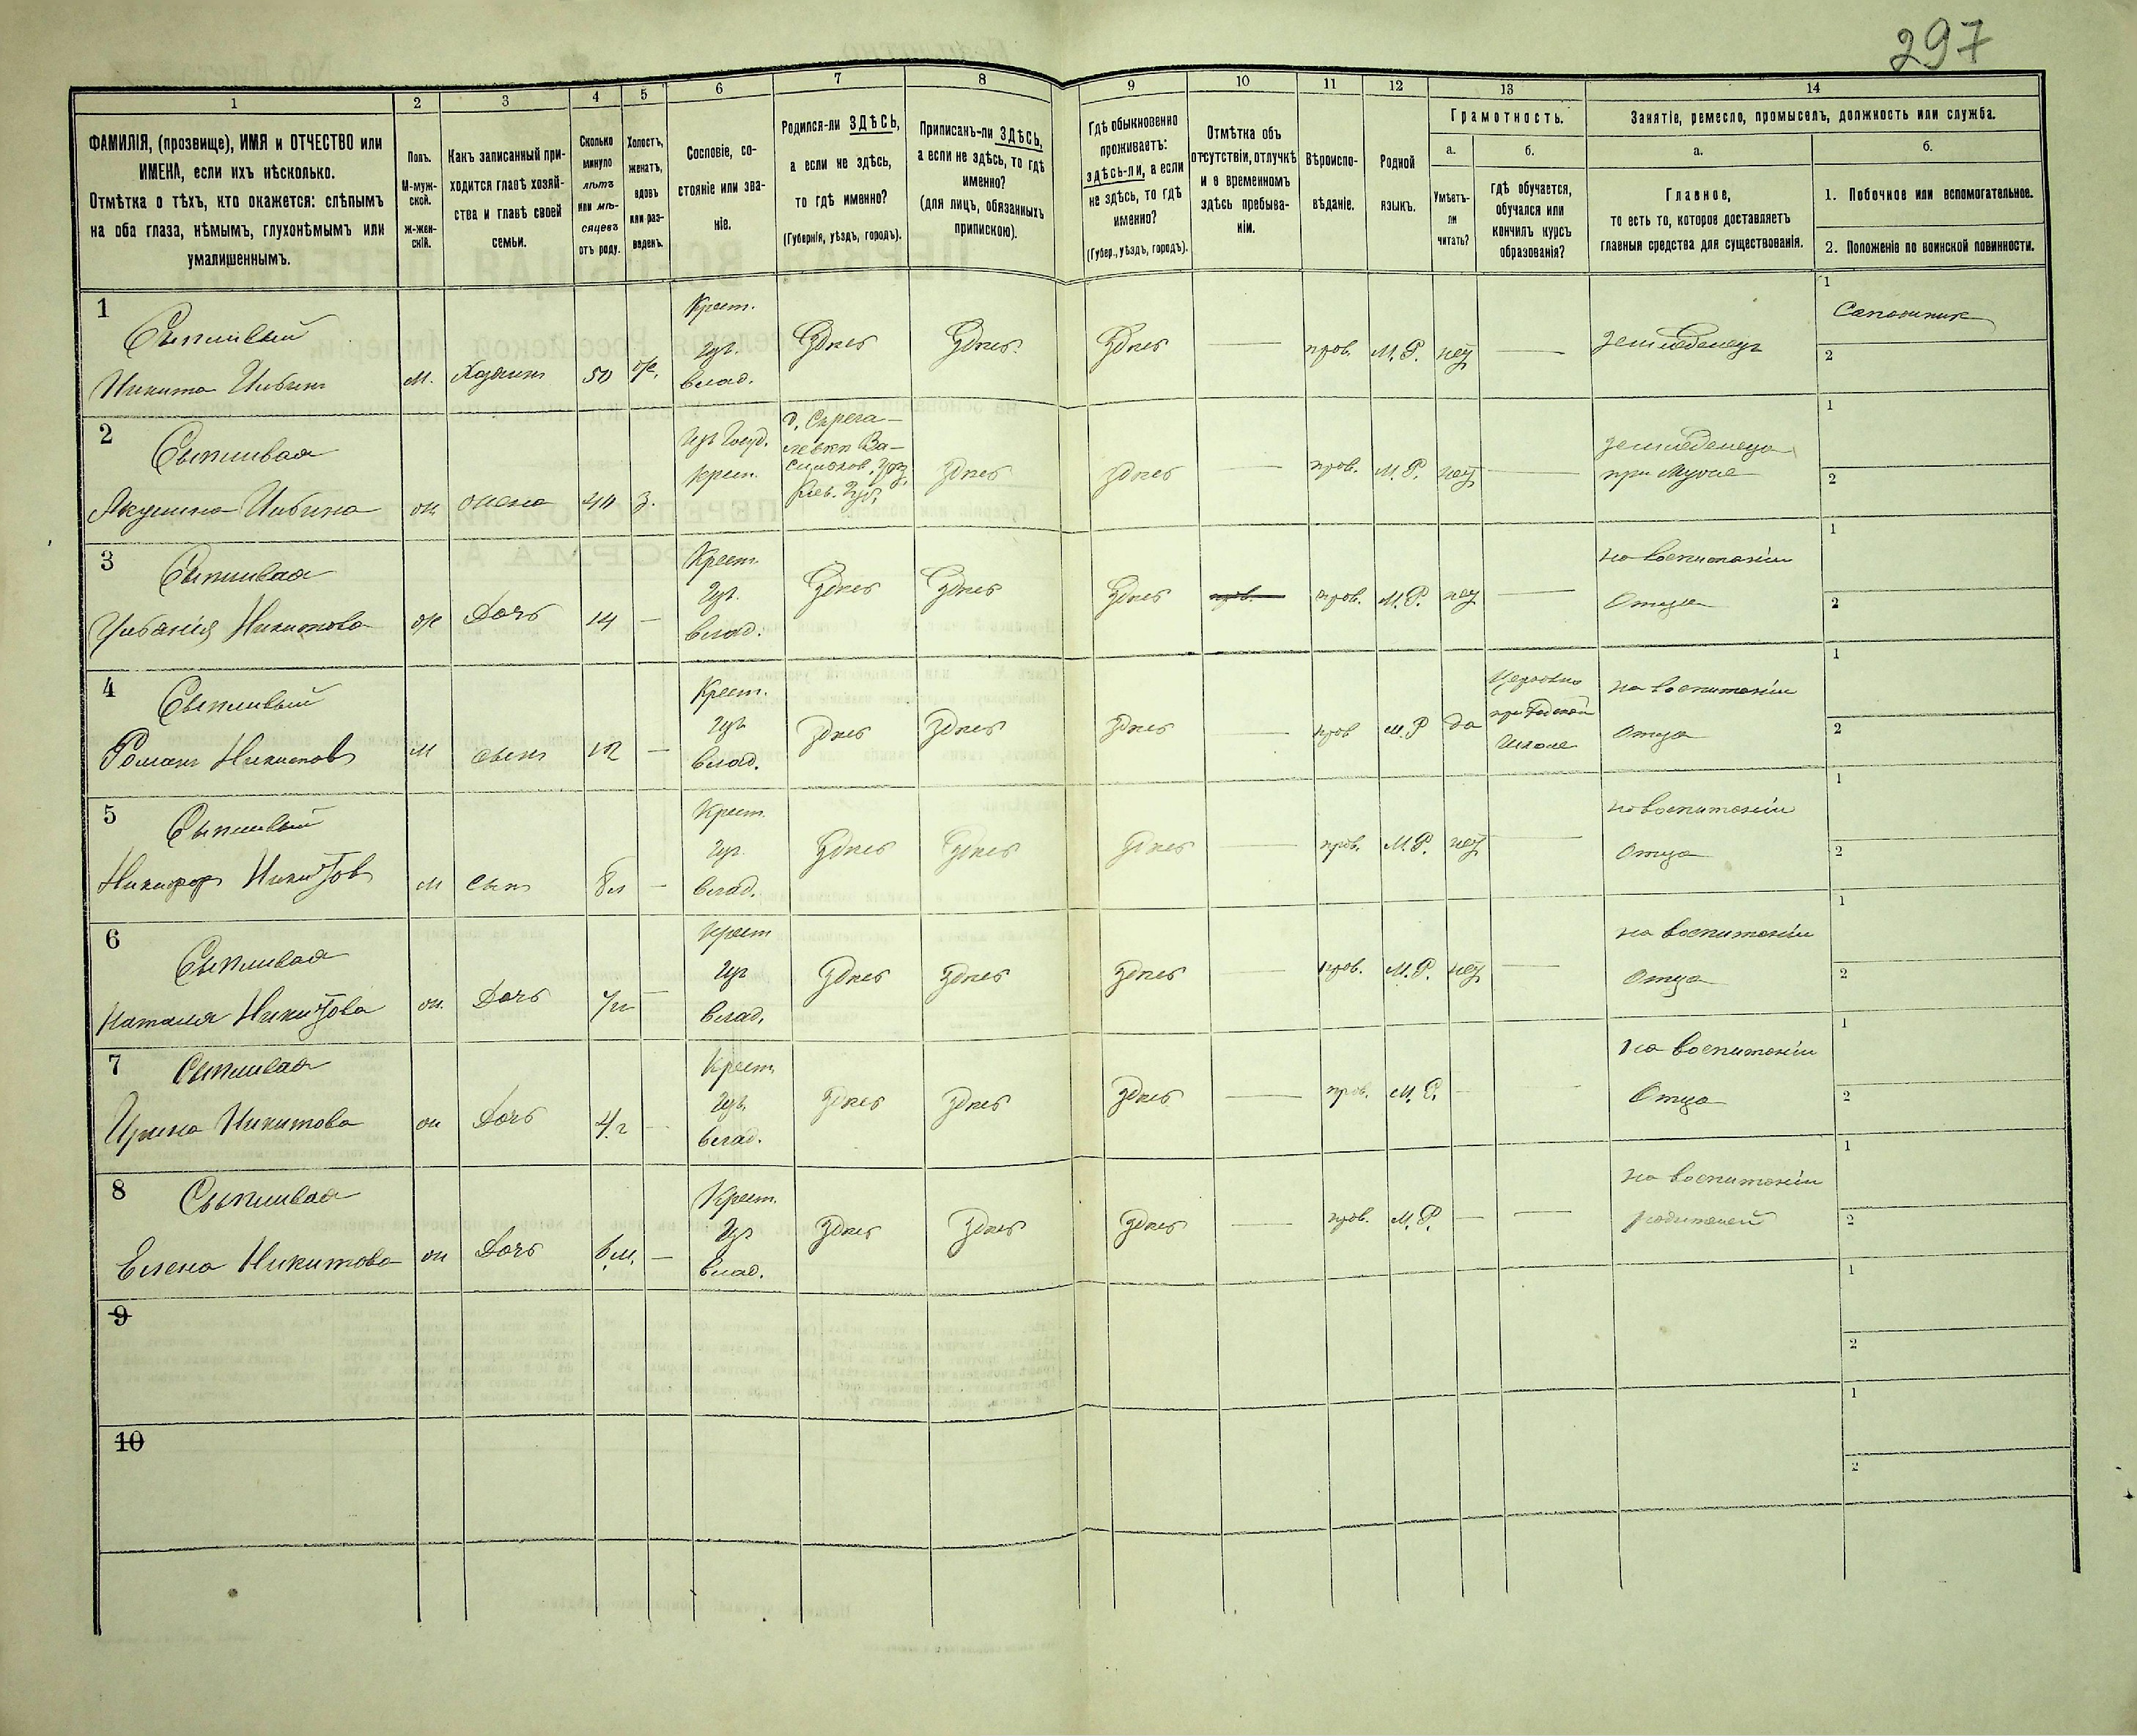 297
1 2 3 4 5 6 7 8 9 10 11 12 13 14
ФАМИЛІЯ, (прозвище), ИМЯ и ОТЧЕСТВО или
ИМЕНА, если ихъ нѣсколько.
Отмѣтка о тѣхъ, кто окажется: слѣпымъ
на оба глаза, нѣмымъ, глухонѣмымъ или
умалишеннымъ.
Полъ.
М-муж-
ской.
ж-жен-
скій.
Какъ записанный при-
ходится главѣ хозяй-
ства и главѣ своей
семьи.
Сколько
минуло
лѣтъ
или мѣ-
сяцевъ
отъ роду.
Холостъ,
женатъ,
вдовъ
или раз-
веденъ.
Сословіе, со-
стояніе или зва-
ніе.
Родился-ли ЗДѢСЬ,
а если не здѣсь,
то гдѣ именно?
(Губернія, уѣздъ, городъ).
Приписанъ-ли ЗДѢСЬ,
а если не здѣсь, то гдѣ
именно?
(для лицъ, обязанныхъ
припискою).
Гдѣ обыкновенно
проживаетъ:
здѣсь-ли, а если
не здѣсь, то гдѣ
именно?
(Губер., уѣздъ, городъ).
Отмѣтка объ
отсутствіи, отлучкѣ
и о временномъ
здѣсь пребыва-
ніи.
Вѣроиспо-
вѣданіе.
Родной
языкъ.
Грамотность.
а.
Умѣетъ-
ли
читать?
б.
гдѣ обучается,
обучался или
кончилъ курсъ
образованія?
Занятіе, ремесло, промыселъ, должность или служба.
а.
Главное,
то есть то, которое доставляетъ
главныя средства для существованія.
б.
1. Побочное или вспомогательное.
2. Положеніе по воинской повинности.
1
Сыпливый
Никита
м.
Хозяинъ
50
ж.
Крест.
изъ
влад.
Здѣсь
Здѣсь
Здѣсь
прав.
М. Р.
нѣтъ
земледѣлецъ
1
Сапожник
2
2
Сыпливая
Акулина
ж
жена
40
з.
крест.
Здѣсь
здѣсь
прав.
М. Р.
нѣтъ
при Мужѣ
1
2
3
Сыпливая
Никитова
ж
Дочь
14
Крест.
изъ
влад.
Здѣсь
Здѣсь
Здѣсь
прав.
М. Р.
нѣтъ
на воспитаніи
Отца
1
2
4
Сыпливый
Романъ Никитовъ
м
сынъ
12
Крест.
изъ
влад.
Здѣсь
Здѣсь
Здѣсь
прав
М. Р
да
Школѣ
на воспитаніи
отца
1
2
5
Сыпливый
Никифоръ Никитовъ
м
сынъ
8 л
Крест.
изъ
влад.
Здѣсь
Здѣсь
Здѣсь
прав.
М. Р.
нѣтъ
на воспитаніи
Отца
1
2
6
Сыпливая
Наталія Никитова
ж.
Дочь
Крест
изъ
влад.
Здѣсь
Здѣсь
Здѣсь
прав.
М. Р.
нѣтъ
на воспитаніи
Отца
1
2
7
Сыпливая
Ирина Никитова
ж
Дочь
4 г
Крест
изъ
влад.
Здѣсь
Здѣсь
здѣсь
прав.
М. Р.
На воспитаніи
Отца
1
2
8
Сыпливая
Елена Никитова
ж
Дочь
6 м.
Крест.
изъ
влад.
Здѣсь
Здѣсь
Здѣсь
прав.
М. Р.
на воспитаніи
родителей
1
2
9
1
2
10
1
2